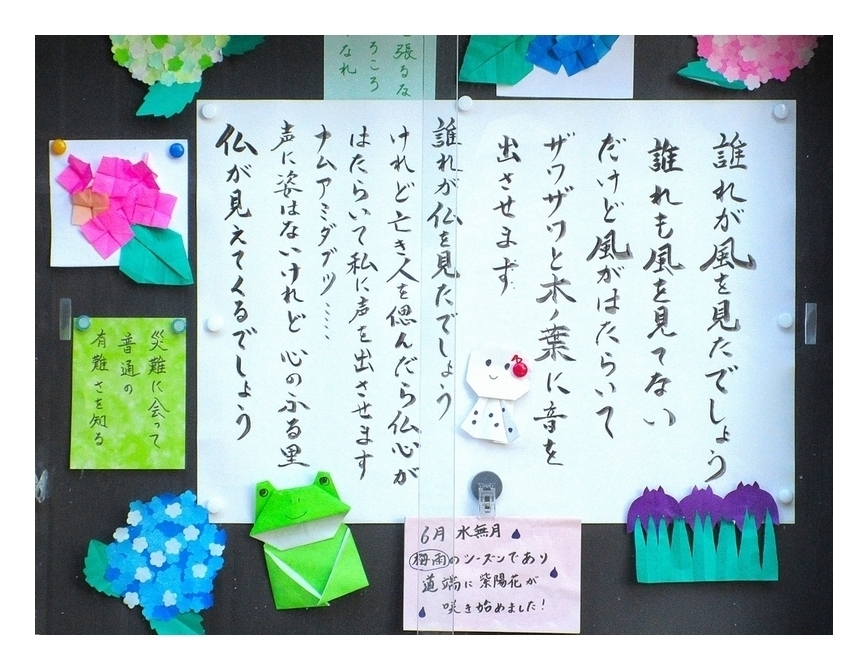 誰れが風を見たでしょう
誰れも風を見てない
だけど風がはたらいて
ザワザワと木ノ葉に音を
出させます
誰れが仏を見たでしょう
けれど亡き人を偲んだら仏心が
はたらいて私に声を出させます
ナムアミダブツ……
声に姿はないけれど 心のふる里
仏が見えてくるでしょう
張るな
ころ
なれ
災難に会って
普通の
有難さを知る
6月 水無月
梅雨のシーズンであり
道端に紫陽花が
咲き始めました!